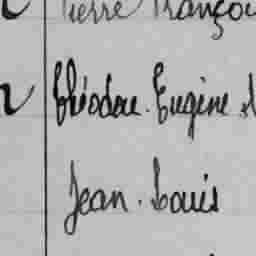 Pierre François
Théodore. Eugène.
Jean. Louis